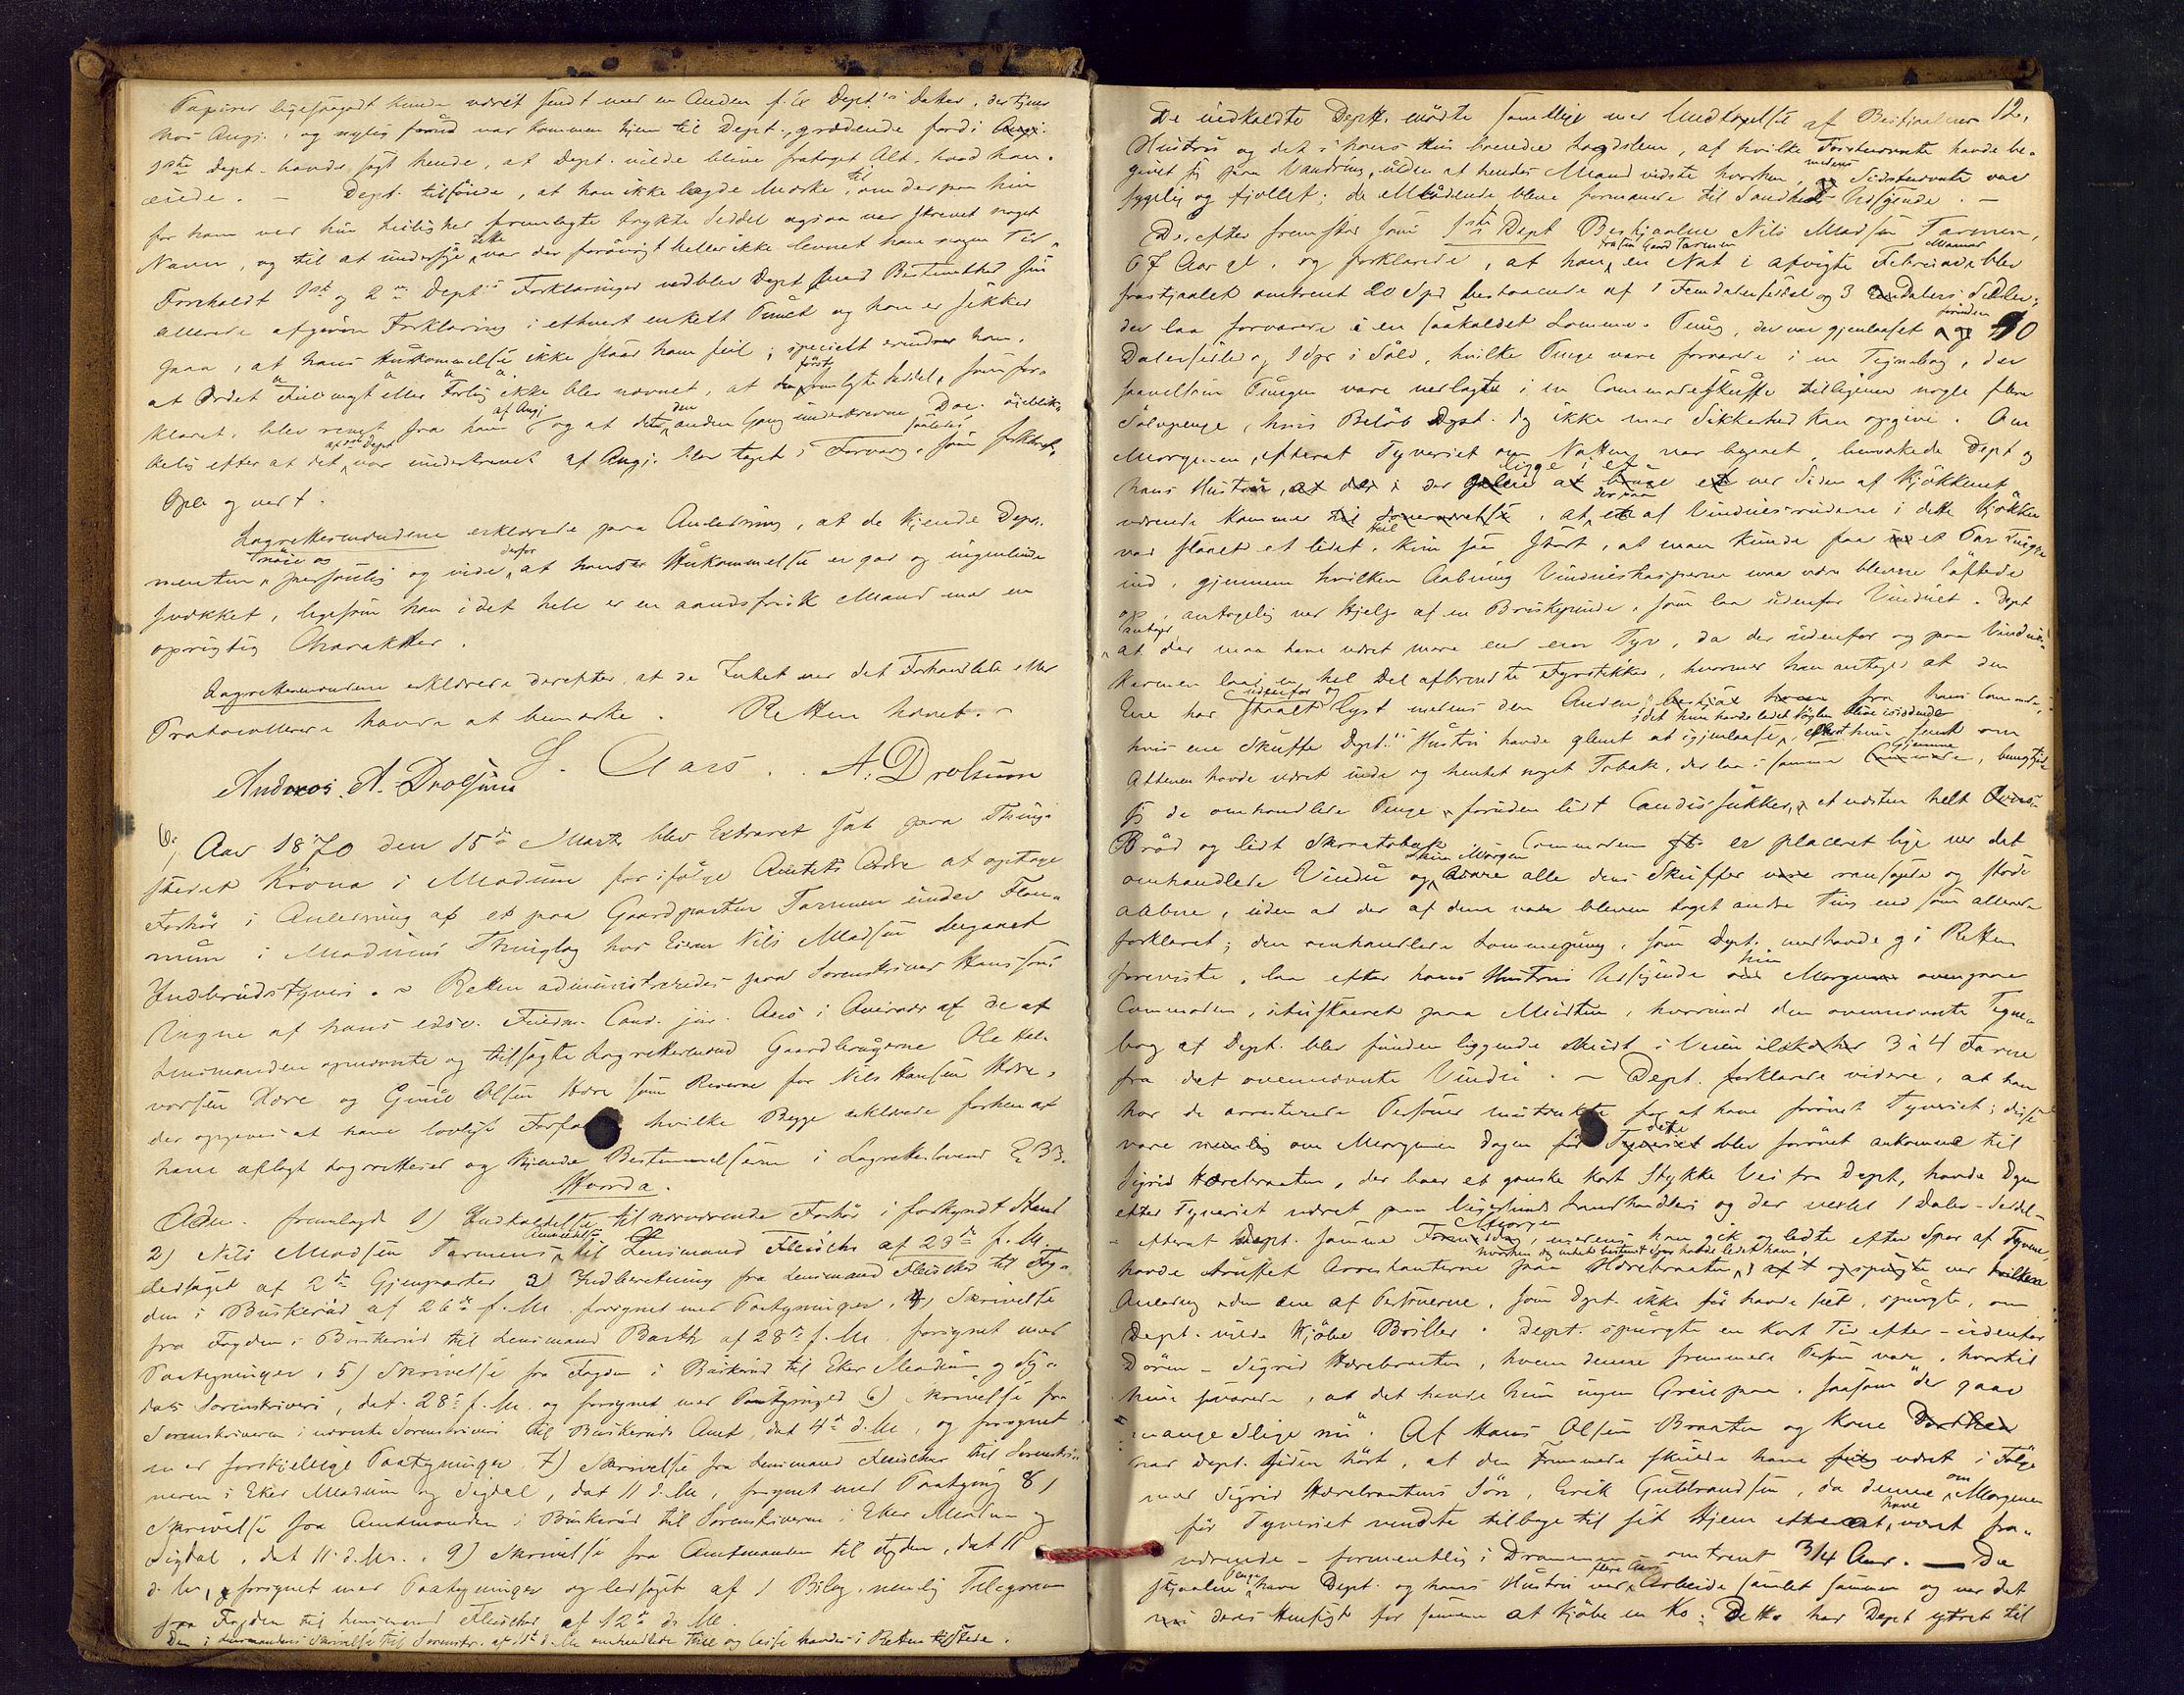 Papirer ligesaagodt kunde været sendt med en Anden f. Ex Dept.'s Datter, der tjener
hos Angj. og nylig forud var kommen hjem til Dept., grædende fordi Angj.
1ste Dept. havde sagt hende, at Dept. vilde blive frataget Alt, hvad han
eiede. – Dept. tilføiede, at han ikke lagde Mærke til, om der paa hin
for ham ved hin Leilighed fremlagte trykte Seddel ogsaa var skrevet noget
Navn, og til at undersøge dette var der forøvrigt heller ikke levnet ham nogen Tid.
Foreholdt 1ste og 2den Dept.'s Forklaringer vedblev Dept. med Bestemthed sin
allerede afgivne Forklaring i ethvert enkelt Punct og han er sikker
paa, at hans Hukommelse ikke slaar ham feil; specielt erindrer han,
at Ordet "Fuldmagt" eller "Forlig" ikke blev nævnet, at den først fremlagte Seddel, som for-
klaret, blev revet fra ham af Angj. og at det den anden Gang underskrevne Doc. øieblik-
kelig efter at det var underskrevet af Dept. af Angj. blev taget i Forvaring, som forklaret.
Oplæst og vedt.
Lagrettesmændene erklærede paa Anledning, at de kjende Depo-
nenten nøie og personlig og vide derfor at hans Hukommelse er god og ingenlunde
svækket, ligesom han i det hele er en aandsfrisk Mand med en
oprigtig Charakter.
Lagrettesmændene erklærede derefter, at de Intet ved det Forhandlede eller
Protocollerede havde at bemærke. Retten hævet. –
S. Aars. A. Drolsum
Andreas A. Drolsum
6) Aar 1870 den 15de Marts blev Extraret sat paa Thing-
stedet Krona i Modum for ifølge Amtets Ordre at optage
Forhør i Anledning af et paa Gaardparten Tarmen under
i Modums Thinglag hos Eieren Nils Madsen begaaet
Indbrudstyveri. – Retten administreredes paa Sorenskriver Hanssons
Vegne af hans edsv. Fuldm. Cand. jur. Aars i Overvær af de af
Lensmanden opnævnte og tilsagte Lagrettesmænd Gaardbrugerne Ole Hal-
vorsen Hære og Gunil Olsen Hære som Reserve for Nils Hansen Hære,
der opgaves at have lovligt Forfald, hvilke Begge erklærede forhen at
have aflagt Lagrettesed og kjende Bestemmelserne i Lagretteslovens § 33.
Hvorda.
Adm. fremlagde 1) Indkaldelse til nærværende Forhør i forkyndt Stand
2) Nils Madsen Tarmens Anmeldelse til Lensmand Fleischer af 23de f. M.
ledsaget af 2de Gjenparter 3) Indberetning fra Lensmand Fleischer til Fog-
den i Buskerud af 26de f. M. forsynet med Paategninger, 4) Skrivelse
fra Fogden i Buskerud til Lensmand Barth af 28de f. M. forsynet med
Paategninger, 5) Skrivelse fra Fogden i Buskerud til Eker Modum og Sig-
dals Sorenskriveri, dat. 28de f. M. og forsynet med Paategning 6) Skrivelse fra
Sorenskriveren i nævnte Sorenskriveri til Buskeruds Amt, dat 4de d. M., og forsynet
med forskjellige Paategninger 7) Skrivelse fra Lensmand Fleischer til Sorenskri-
veren i Eker Modum og Sigdal, dat 11 d. M., forsynet med Paategning 8)
Skrivelse fra Amtmanden i Buskerud til Sorenskriveren i Eker Modum og
Sigdal, dat 11 d. M., 9) Skrivelse fra Amtmanden til Fogden, dat 11
d. M., forsynet med Paategninger og ledsaget af 1 Bilag, nemlig Telegram
fra Fogden til Lensmand Fleischer af 12te d. M.
Den i Lensmandens Skrivelse til Sorenskr. af 11te d. M. omhandlede havdes i Retten tilstede.
12.
De indkaldte Deptt. mødte samtlige med Undtagelse af Bestjaalnes
Hustru og det i hans Hus boende Lægdslem, af hvilke Førstnævnte havde be-
givet sig paa Vandring, uden at hendes Mand vidste hvorhen, medens Sidstnævnte var
sygelig og fjollet; de Mødende bleve formanede til Sandheds Udsigende. –
Derefter fremstod som 1ste Dept Bestjaalne Nils Madsen Tarmen,
67 Aar gl. og forklarede, at han fra sin Gaard Tarmen en Nat i afvigte Februar Maaned blev
frastjaalet omtrent 20 Spd bestaaende af 1 Femdalerseddel og 3 Endalers Sedler,
der laa forvarede i en saakaldet Lomme-Pung, der var gjenlaaset foruden 10
Dalersedler og 1 Spd i Sølv, hvilke Penge vare forvarede i en Tegnebog, der
saavelsom Pungen vare nedlagte i en Commodeskuffe tilligemed nogle flere
Sølvpenge, hvis Beløb Dept. dog ikke med Sikkerhed kan opgive. Om
Morgenen, efterat Tyveriet om Natten var begaaet, bemærkede Dept og
hans Hustru, der ligge i et ved Siden af Kjøkkenet
værende Kammer, at en af Vinduesruderne i dette Kjøkken
var slaaet et lidet Hul, kun saa stort, at man kunde faa et Par Fingre
ind, gjennem hvilken Aabning Vindueshasperne maa være blevne løftede
op, antagelig ved Hjelp af en Bruskepinde, som laa udenfor Vinduet. Dept
antager, at der maa have været mere end een Tyv, da der udenfor og paa Vindues-
karmen laa en hel Del afbrændte Fyrstikker, hvormed han antager at den
Ene har staaet udenfor og lyst medens den Anden bestjal fra hans Commode,
hvis ene Skuffe Dept.'s Hustru havde glemt at igjenlaase, idet hun havde ladet Nøglen blive isiddende, efterat hun sent om
Aftenen havde været inde og hentet noget Tobak, der laa i samme Gjemme,
de omhandlede Penge, foruden lidt Candissukker, et næsten helt
Brød og lidt Skraatobak. Commoden er placeret lige ved det
omhandlede Vindu og hin Morgen vare alle dens Skuffer ransagede og stode
aabne, uden at der af dem var bleven taget andre Ting end som allerede
forklaret; den omhandlede Lommepung, som Dept. medhavde og i Retten
foreviste, laa efter hans Hustrus Udsigende hin Morgen ovenpaa
Commoden, ituskaaret paa Midten, hvorimod den ovennævnte Tegne-
bog af Dept. blev funden liggende midt i Veien 3 à 4 Favne
fra det ovennævnte Vindu. – Dept. forklarede videre, at han
har de arresterede Personer mistænkte for at have forøvet Tyveriet; disse
vare nemlig om Morgenen Dagen før dette blev forøvet ankomne til
Sigrid Hærebraaten, der boer et ganske kort Stykke Vei fra Dept, havde Dagen
efter Tyveriet været paa Landhandleri og der vexlet 1 Daler-Seddel
– efterat Dept. samme Morgen, medens han gik og ledte efter Spor af Tyvene,
havde truffet Arrestanterne paa Hærebraaten, hvorhen dog intet bestemt Spor havde ledet ham,
Anledning den ene af Personerne, som Dept. ikke før havde seet, spurgte, om
Dept. vilde kjøbe Briller. Dept. spurgte en kort Tid efter – udenfor
Døren – Sigrid Hærebraaten, hvem denne fremmede Person var, hvortil
hun svarede, at det havde hun ingen Greie paa, saasom "der gaar
mange slige nu". Af Hans Olsen Braaten og Kone
har Dept. siden hørt, at den Fremmede skulde have været i Følge
med Sigrid Hærebraatens Søn, Erik Gulbrandsen, da denne om Morgenen
før Tyveriet vendte tilbage til sit Hjem efter at have været fra-
værende – formentlig i Drammen – omtrent 3/4 Aar. — De
stjaalne Penge have Dept. og hans Hustru ved flere Aars Arbeide samlet sammen og var det
deres Hensigt for samme at kjøbe en Ko; Dette har Dept ytret til